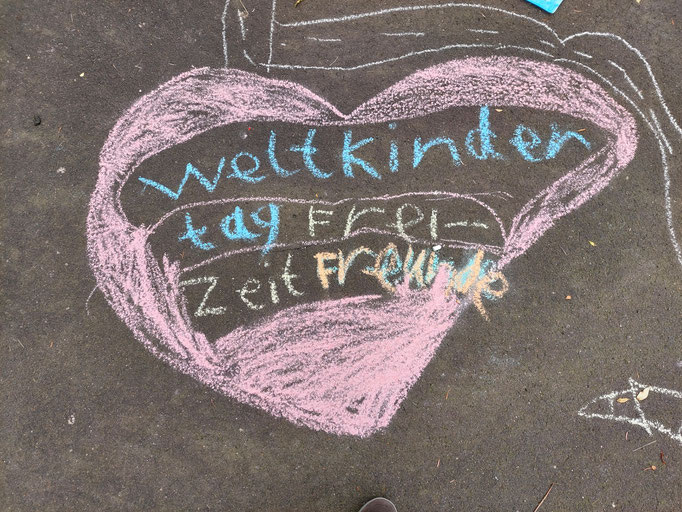 Weltkinder
tag Frei-
Zeit Freunde